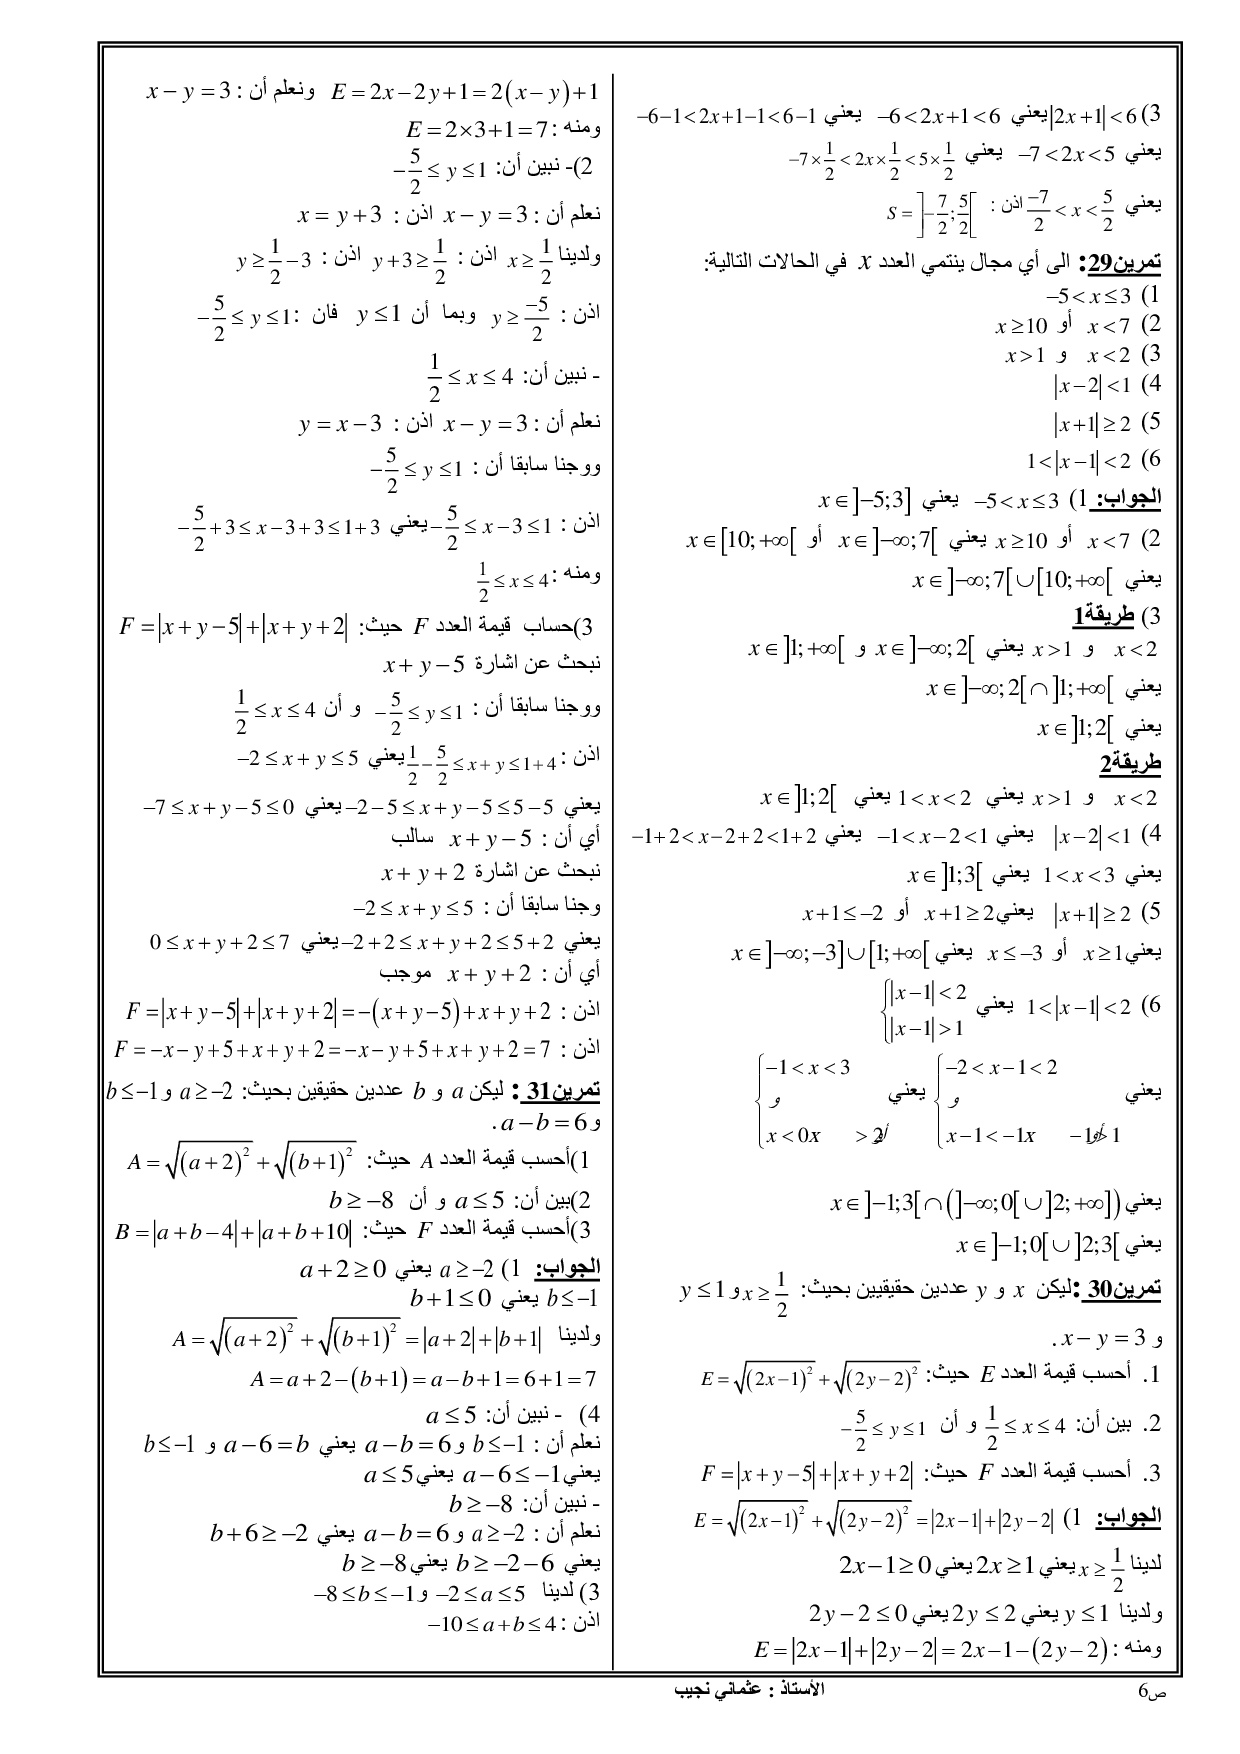 3) |2x+1| < 6 يعني −6 < 2x+1 < 6 يعني −6−1 < 2x+1−1 < 6−1
يعني −7 < 2x < 5 يعني −7×1/2 < 2x×1/2 < 5×1/2
يعني −7/2 < x < 5/2 اذن : S = ]−7/2 ; 5/2[
تمرين29: الى أي مجال ينتمي العدد x في الحالات التالية:
1) −5 < x ≤ 3
2) x < 7 أو x ≥ 10
3) x < 2 و x > 1
4) |x−2| < 1
5) |x+1| ≥ 2
6) 1 < |x−1| < 2
الجواب: 1) −5 < x ≤ 3 يعني x ∈ ]−5;3]
2) x < 7 أو x ≥ 10 يعني x ∈ ]−∞;7[ أو x ∈ [10;+∞[
يعني x ∈ ]−∞;7[ ∪ [10;+∞[
3) طريقة1
x < 2 و x > 1 يعني x ∈ ]−∞;2[ و x ∈ ]1;+∞[
يعني x ∈ ]−∞;2[ ∩ ]1;+∞[
يعني x ∈ ]1;2[
طريقة2
x < 2 و x > 1 يعني 1 < x < 2 يعني x ∈ ]1;2[
4) |x−2| < 1 يعني −1 < x−2 < 1 يعني −1+2 < x−2+2 < 1+2
يعني 1 < x < 3 يعني x ∈ ]1;3[
5) |x+1| ≥ 2 يعني x+1 ≥ 2 أو x+1 ≤ −2
يعني x ≥ 1 أو x ≤ −3 يعني x ∈ ]−∞;−3] ∪ [1;+∞[
6) 1 < |x−1| < 2 يعني { |x−1| < 2
|x−1| > 1
يعني { −2 < x−1 < 2 يعني { −1 < x < 3
و و
x−1 < −1 أو x −1 > 1 x < 0 أو x > 2
يعني x ∈ ]−1;3[ ∩ (]−∞;0[ ∪ ]2;+∞])
يعني x ∈ ]−1;0[ ∪ ]2;3[
تمرين30 : ليكن x و y عددين حقيقيين بحيث: x ≥ 1/2 و y ≤ 1
و x − y = 3 .
1. أحسب قيمة العدد E حيث: E = √(2x−1)² + √(2y−2)²
2. بين أن: 1/2 ≤ x ≤ 4 و أن −5/2 ≤ y ≤ 1
3. أحسب قيمة العدد F حيث: F = |x+y−5| + |x+y+2|
الجواب: 1) E = √(2x−1)² + √(2y−2)² = |2x−1| + |2y−2|
لدينا x ≥ 1/2 يعني 2x ≥ 1 يعني 2x−1 ≥ 0
ولدينا y ≤ 1 يعني 2y ≤ 2 يعني 2y−2 ≤ 0
ومنه : E = |2x−1| + |2y−2| = 2x−1−(2y−2)
E = 2x−2y+1 = 2(x−y)+1 ونعلم أن : x−y = 3
ومنه : E = 2×3+1 = 7
2)- نبين أن: −5/2 ≤ y ≤ 1
نعلم أن : x−y = 3 اذن : x = y+3
ولدينا x ≥ 1/2 اذن : y+3 ≥ 1/2 اذن : y ≥ 1/2 −3
اذن : y ≥ −5/2 وبما أن y ≤ 1 فان : −5/2 ≤ y ≤ 1
- نبين أن: 1/2 ≤ x ≤ 4
نعلم أن : x−y = 3 اذن : y = x−3
ووجنا سابقا أن : −5/2 ≤ y ≤ 1
اذن : −5/2 ≤ x−3 ≤ 1 يعني −5/2 +3 ≤ x−3+3 ≤ 1+3
ومنه : 1/2 ≤ x ≤ 4
3)حساب قيمة العدد F حيث: F = |x+y−5| + |x+y+2|
نبحث عن اشارة x+y−5
ووجنا سابقا أن : −5/2 ≤ y ≤ 1 و أن 1/2 ≤ x ≤ 4
اذن : 1/2 − 5/2 ≤ x+y ≤ 1+4 يعني −2 ≤ x+y ≤ 5
يعني −2−5 ≤ x+y−5 ≤ 5−5 يعني −7 ≤ x+y−5 ≤ 0
أي أن : x+y−5 سالب
نبحث عن اشارة x+y+2
وجنا سابقا أن : −2 ≤ x+y ≤ 5
يعني −2+2 ≤ x+y+2 ≤ 5+2 يعني 0 ≤ x+y+2 ≤ 7
أي أن : x+y+2 موجب
اذن : F = |x+y−5| + |x+y+2| = −(x+y−5)+x+y+2
اذن : F = −x−y+5+x+y+2 = −x−y+5+x+y+2 = 7
تمرين31 : ليكن a و b عددين حقيقين بحيث: a ≥ −2 و b ≤ −1
و a−b = 6 .
1)أحسب قيمة العدد A حيث: A = √(a+2)² + √(b+1)²
2)بين أن: a ≤ 5 و أن b ≥ −8
3)أحسب قيمة العدد F حيث: B = |a+b−4| + |a+b+10|
الجواب: 1) a ≥ −2 يعني a+2 ≥ 0
b ≤ −1 يعني b+1 ≤ 0
ولدينا A = √(a+2)² + √(b+1)² = |a+2| + |b+1|
A = a+2−(b+1) = a−b+1 = 6+1 = 7
4) - نبين أن: a ≤ 5
نعلم أن : b ≤ −1 و a−b = 6 يعني a−6 = b و b ≤ −1
يعني a−6 ≤ −1 يعني a ≤ 5
- نبين أن: b ≥ −8
نعلم أن : a ≥ −2 و a−b = 6 يعني b+6 ≥ −2
يعني b ≥ −2−6 يعني b ≥ −8
3) لدينا −2 ≤ a ≤ 5 و −8 ≤ b ≤ −1
اذن : −10 ≤ a+b ≤ 4
ص6 الأستاذ : عثماني نجيب